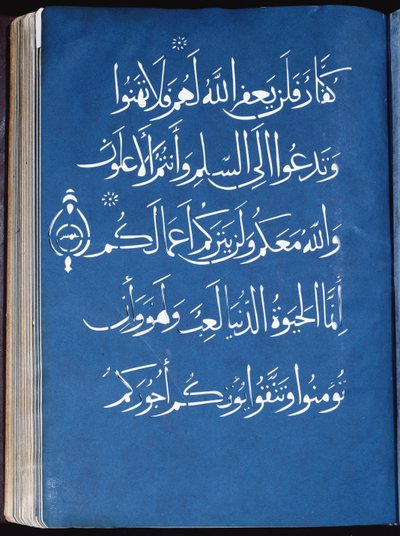 كُفَّارٌ فَلَن يَغفِرَ اللَّهُ لَهُم فَلَا تَهِنُوا
وَتَدعُوا إِلَى السَّلمِ وَأَنتُمُ الأَعلَونَ
وَاللَّهُ مَعَكُم وَلَن يَتِرَكُم أَعمَالَكُم
إِنَّمَا الحَيَوةُ الدُّنيَا لَعِبٌ وَلَهوٌ وَإِن
تُؤمِنُوا وَتَتَّقُوا يُؤتِكُم أُجُورَكُم